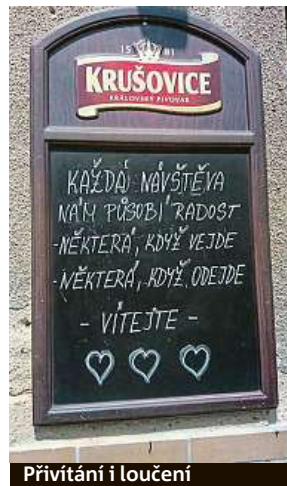 15 81
KRUŠOVICE
KRÁLOVSKÝ PIVOVAR
KAŽDÁ NÁVŠTĚVA
NÁM PŮSOBÍ RADOST
-NĚKTERÁ, KDYŽ VEJDE
-NĚKTERÁ, KDYŽ ODEJDE
- VÍTEJTE -
Přivítání i loučení